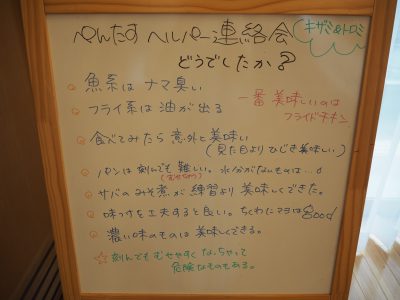 ぺんたす ヘルパー連絡会
キザミ&トロミ
どうでしたか?
魚系は ナマ臭い
フライ系は 油が出る
一番 美味しいのは
フライドチキン
食べてみたら 意外と美味い
(見た目よりひじき美味しい)
パンは刻んでも 難しい。水分がないものは…。
(むせちゃう)
サバのみそ煮が 練習より 美味しくできた。
味つけを工夫すると良い。ちくわにマヨはgood
濃い味のものは 美味しくできる。
☆刻んでも むせやすく なっちゃって
危険なものもある。